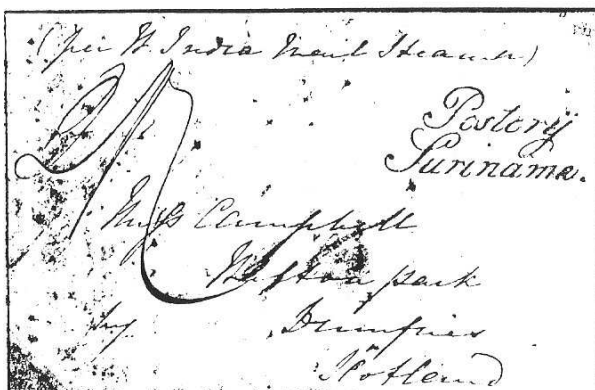 (per W. India Mail Steamer)
Postvry
Suriname.
Miss Campbell
park
by Dumfries
Scotland